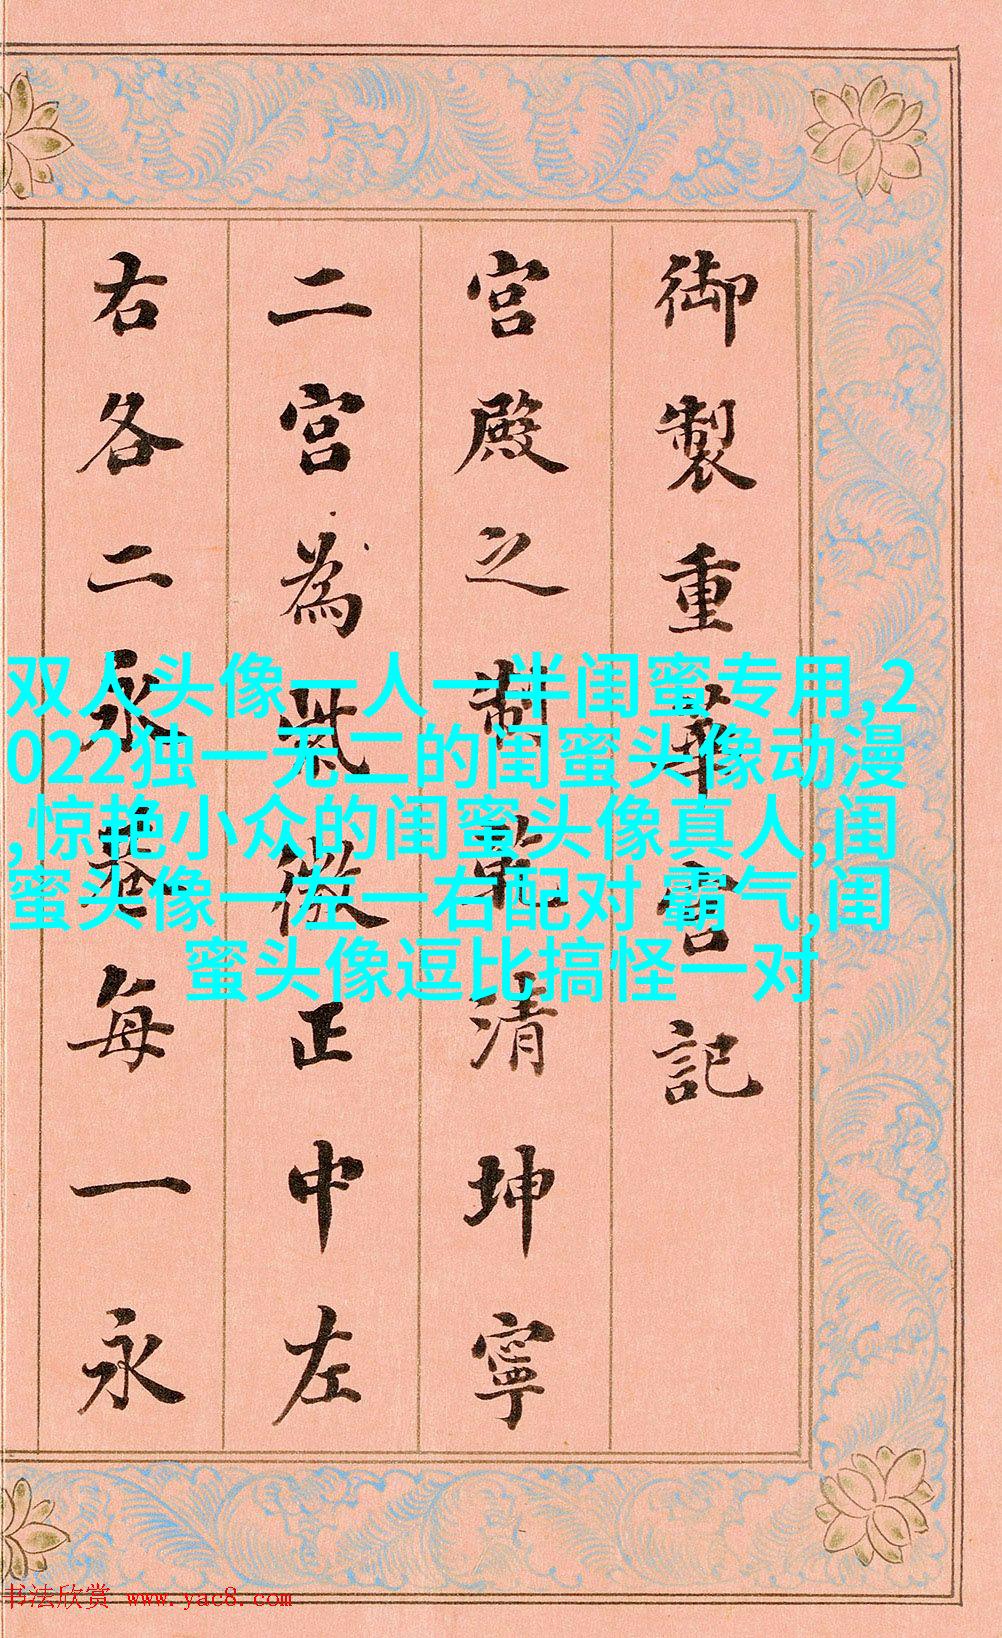 御製重華宫記
宫殿之制乾清坤寧
二宫為紫微正中左
右各二永巷每一永
双人头像一人一半闺蜜专用,2
022独一无二的闺蜜头像动漫
,惊艳小众的闺蜜头像真人,闺
蜜头像一左一右配对 霸气,闺
蜜头像逗比搞怪一对
书法欣赏 www.yac8.com